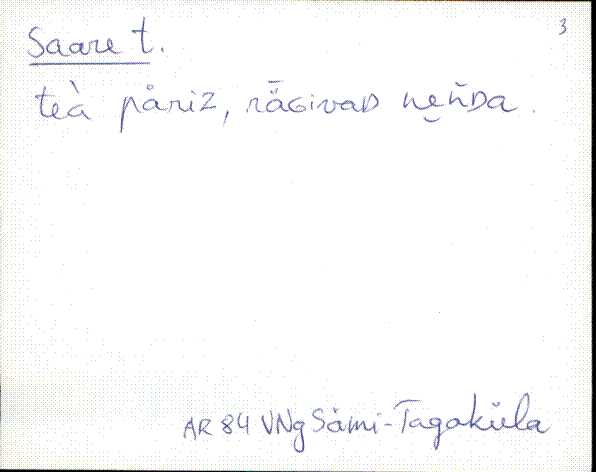 3
Saare t.
teà på̄riz, rǟGivaD ne̮ńDa.
AR 84 VNg Sämi-Tagaküla